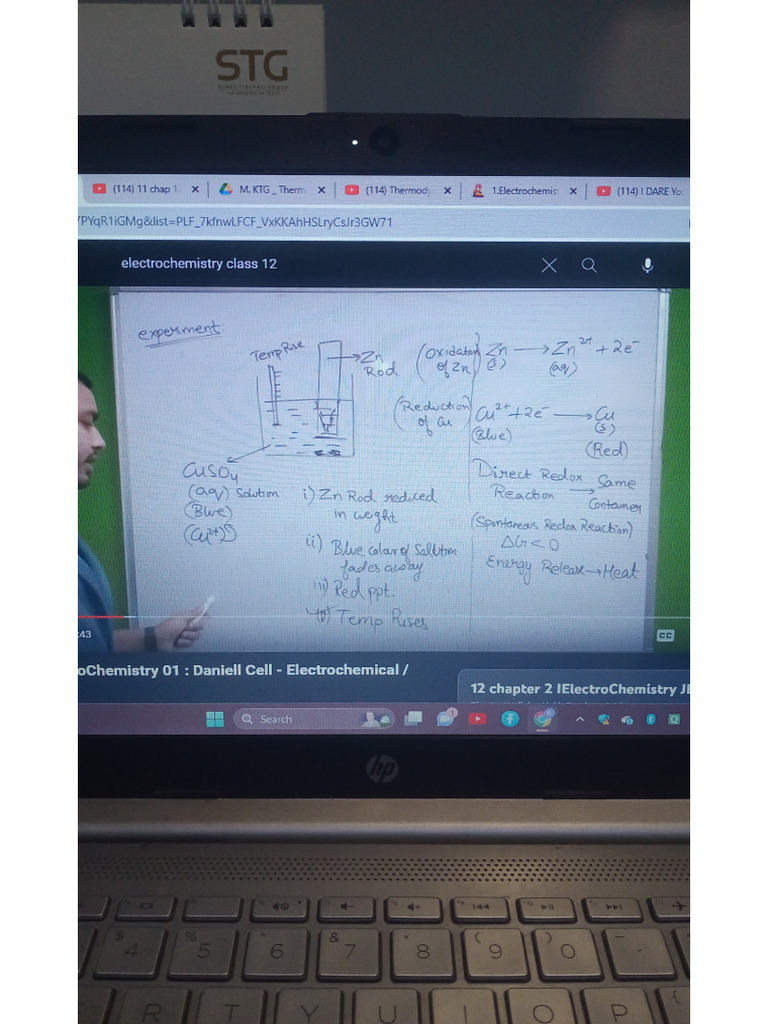 STG
(114) 11 chap 1
M. KTG _ Therm
(114) Thermody
1.Electrochemis
(114) I DARE Yo
7PYqR1iGMg&list=PLF_7kfnwLFCF_VxKKAhHSLryCsJr3GW71
electrochemistry class 12
experiment:
Temp Rise
Zn
Rod
(Oxidation
of Zn)
Zn → Zn²⁺ + 2e⁻
(s) (aq)
(Reduction
of Cu)
Cu²⁺ + 2e⁻ → Cu
(s)
(Blue) (Red)
CuSO₄
(aq) Solution
(Blue)
(Cu²⁺)
i) Zn Rod reduced
in weight
ii) Blue colour of Solution
fades away
iii) Red ppt.
iv) Temp Rises
Direct Redox
Reaction → Same
Container
(Spontaneous Redox Reaction)
ΔG < 0
Energy Release → Heat
:43
CC
oChemistry 01 : Daniell Cell - Electrochemical /
12 chapter 2 IElectroChemistry JE
Search
1
hp
$ 4
% 5
^ 6
& 7
* 8
( 9
) 0
-
R T Y U I O P {